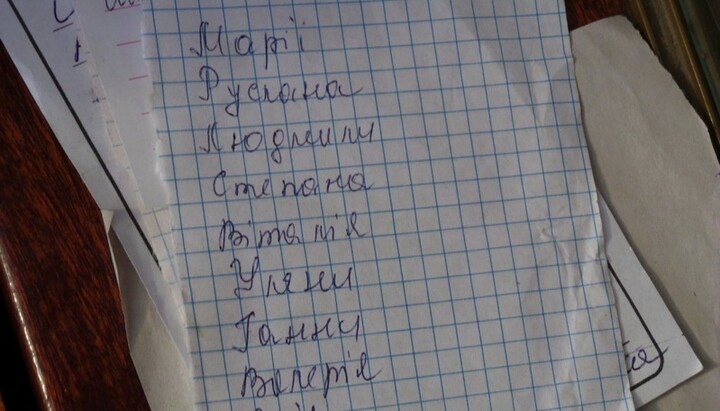 Марії
Руслана
Людмили
Степана
Віталія
Уляни
Ганни
Валерія